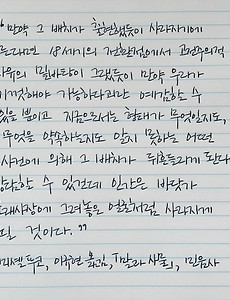 "만약 그 배치가 출현했듯이 사라지기에
른다면 18세기의 전환점에서 고전주의적
사유의 밑바탕이 그랬듯이 만약 우리가
기껏해야 가능하다고만 예감할 수
있을 뿐이고 지금으로서는 형태가 무엇인지도,
무엇을 약속하는지도 알지 못하는 어떤
사건에 의해 그 배치가 뒤흔들리게 된다
장담할 수 있건대 인간은 바닷가
모래사장에 그려놓은 얼굴처럼 사라지게
될 것이다."
미셸 푸코, 이규현 옮김, 『말과 사물』, 민음사